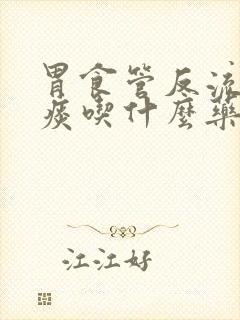 胃食管反流
痰喫什麼藥
江江好